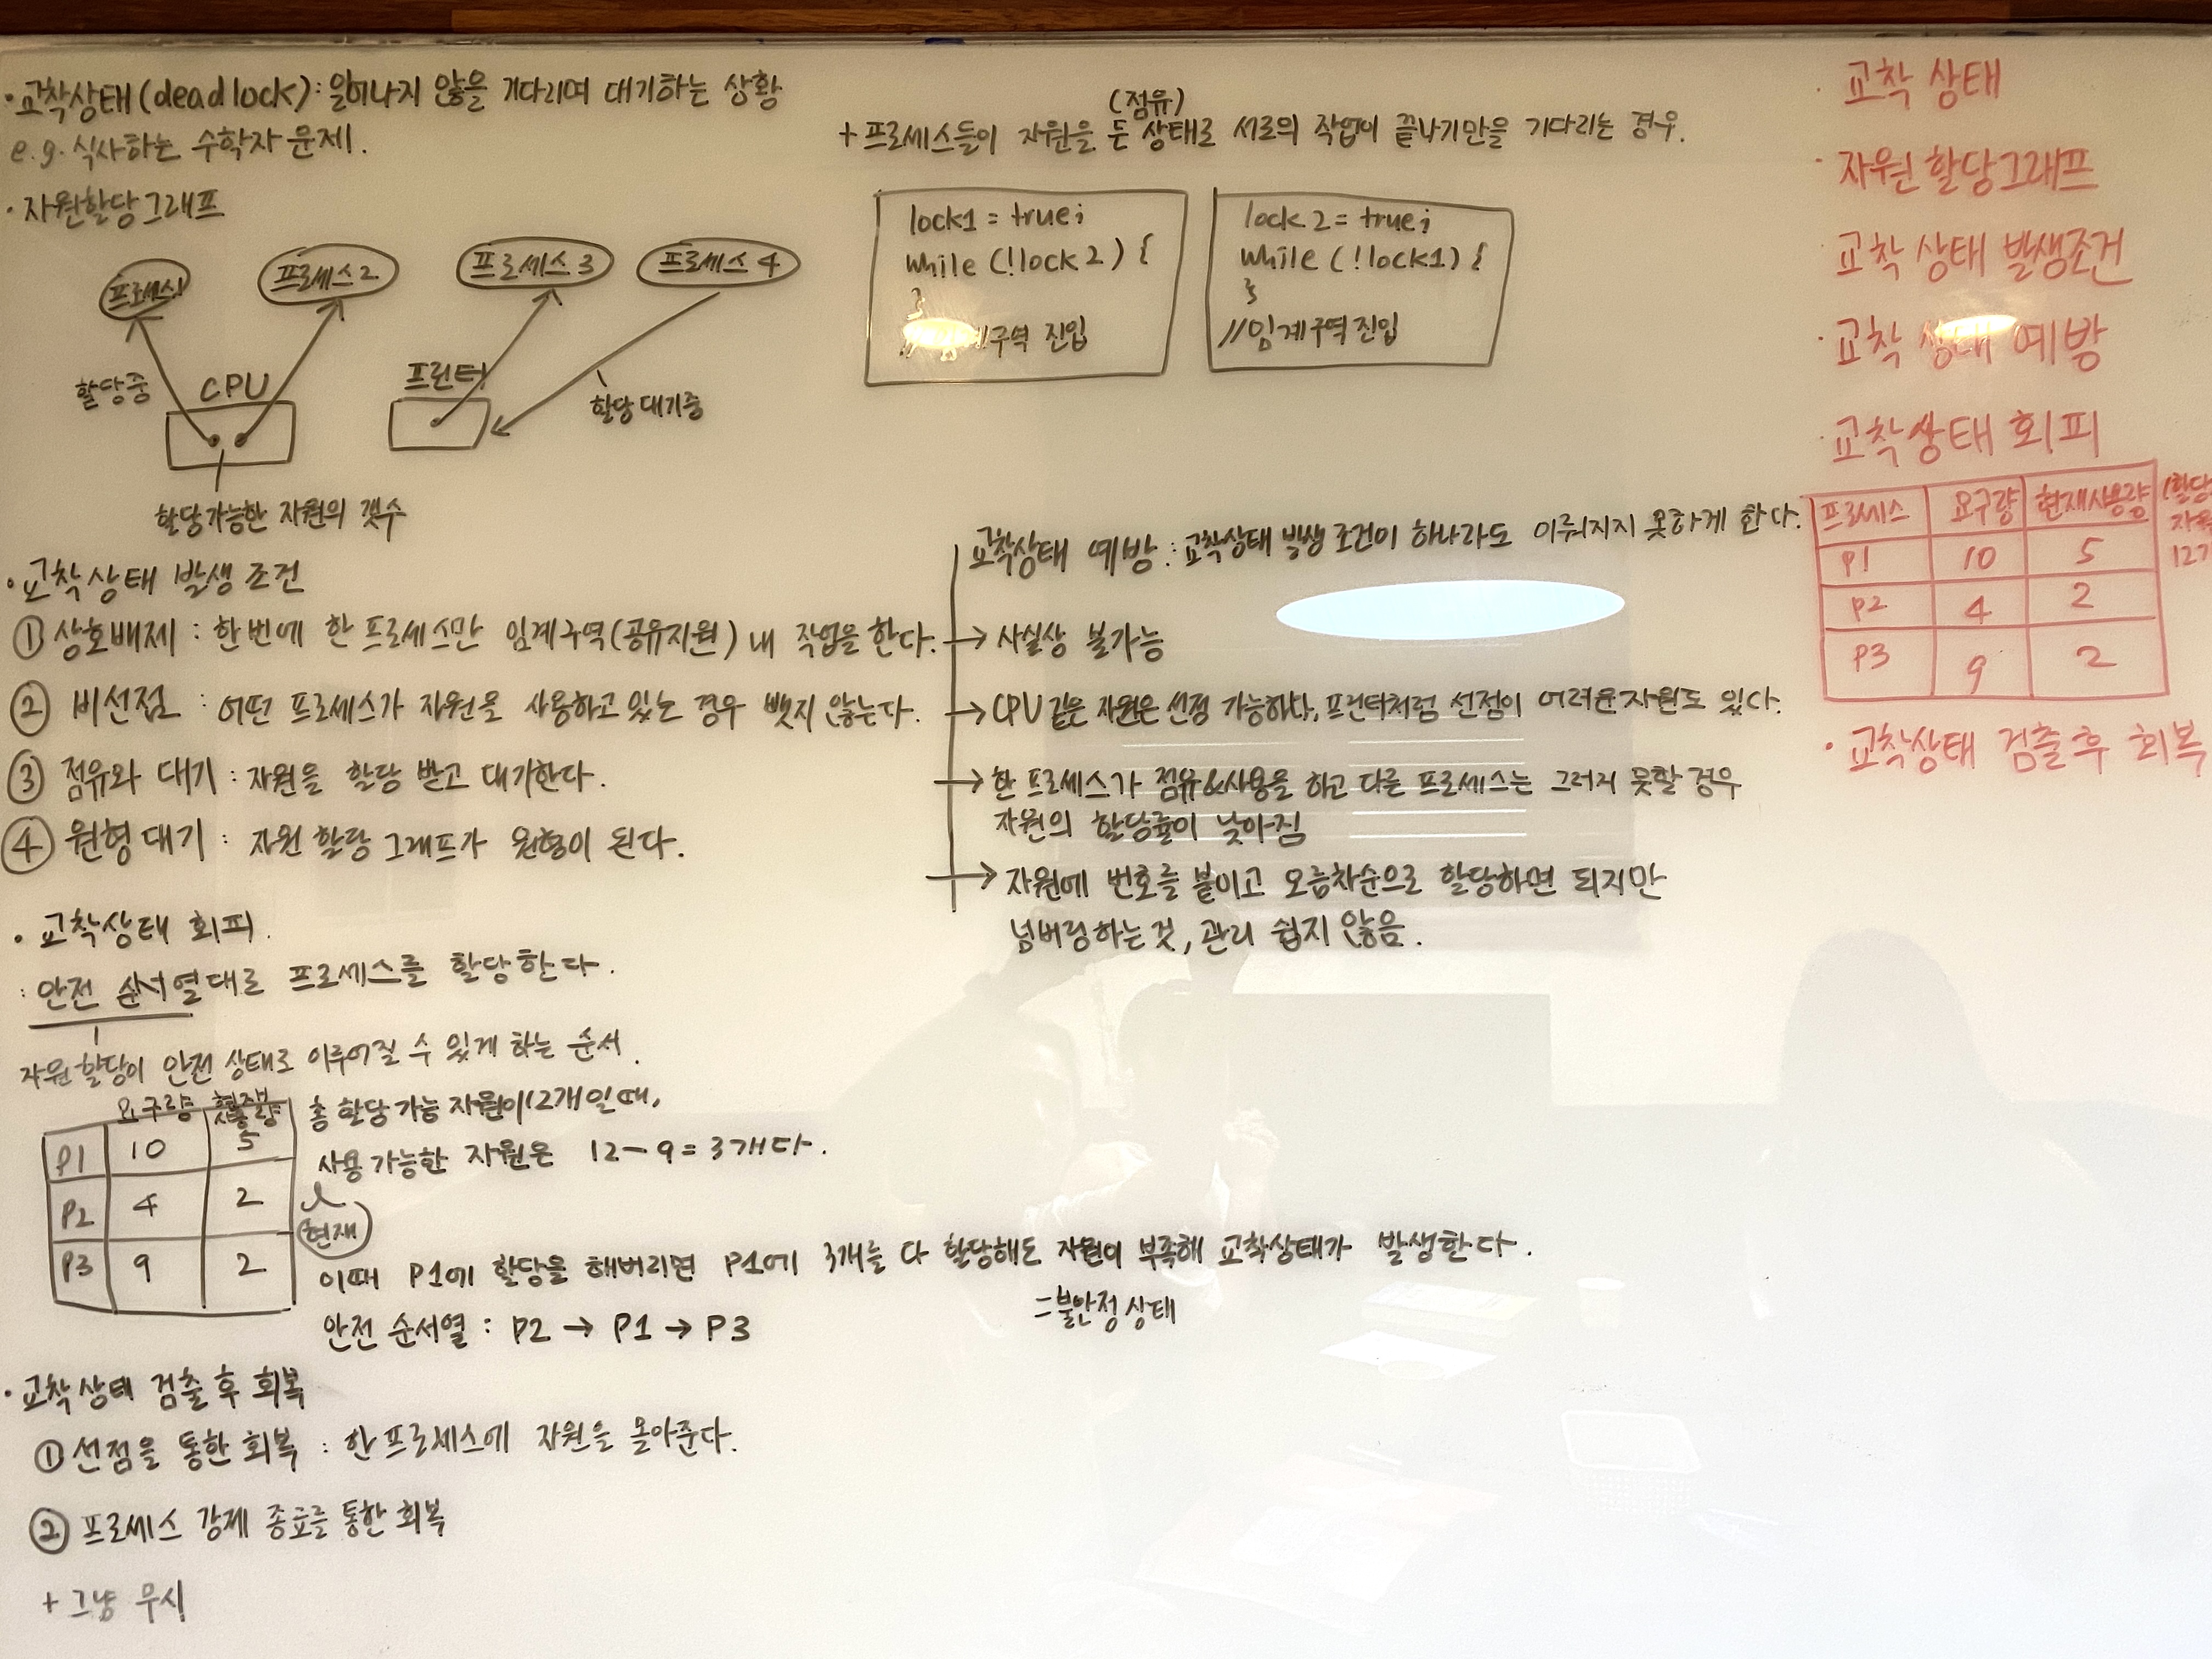 · 교착상태(deadlock): 일어나지 않을 기다리며 대기하는 상황
e.g. 식사하는 수학자 문제.
(점유)
+ 프로세스들이 자원을 든 상태로 서로의 작업이 끝나기만을 기다리는 경우.
· 자원할당그래프
프로세스1 프로세스2 프로세스3 프로세스4
할당중 CPU 프린터 할당 대기중
할당가능한 자원의 갯수
lock1 = true;
while (!lock2) {
}
구역 진입
lock2 = true;
while (!lock1) {
}
//임계구역 진입
· 교착상태 발생 조건
① 상호배제 : 한번에 한 프로세스만 임계구역(공유자원) 내 작업을 한다.
② 비선점 : 어떤 프로세스가 자원을 사용하고 있는 경우 뺏지 않는다.
③ 점유와 대기 : 자원을 할당 받고 대기한다.
④ 원형대기 : 자원 할당 그래프가 원형이 된다.
교착상태 예방 : 교착상태 발생 조건이 하나라도 이뤄지지 못하게 한다.
→ 사실상 불가능
→ CPU 같은 자원은 선점 가능하나, 프린터처럼 선점이 어려운 자원도 있다.
→ 한 프로세스가 점유&사용을 하고 다른 프로세스는 그러지 못할 경우
자원의 할당률이 낮아짐
→ 자원에 번호를 붙이고 오름차순으로 할당하면 되지만
넘버링하는 것, 관리 쉽지 않음.
· 교착상태 회피.
: 안전 순서열대로 프로세스를 할당한다.
자원할당이 안전 상태로 이루어질 수 있게 하는 순서.
요구량
P1 10 5
P2 4 2
P3 9 2
총 할당 가능 자원이 12개일 때,
사용 가능한 자원은 12-9=3개다.
현재
이때 P1에 할당을 해버리면 P1에 3개를 다 할당해도 자원이 부족해 교착상태가 발생한다.
=불안정 상태
안전 순서열 : P2 → P1 → P3
· 교착상태 검출 후 회복
① 선점을 통한 회복 : 한 프로세스에 자원을 몰아준다.
② 프로세스 강제 종료를 통한 회복
+ 그냥 무시
· 교착 상태
· 자원 할당그래프
· 교착 상태 발생조건
· 교착 상태 예방
· 교착상태 회피
프로세스 요구량 현재사용량
P1 10 5
P2 4 2
P3 9 2
(할당
12
· 교착상태 검출 후 회복